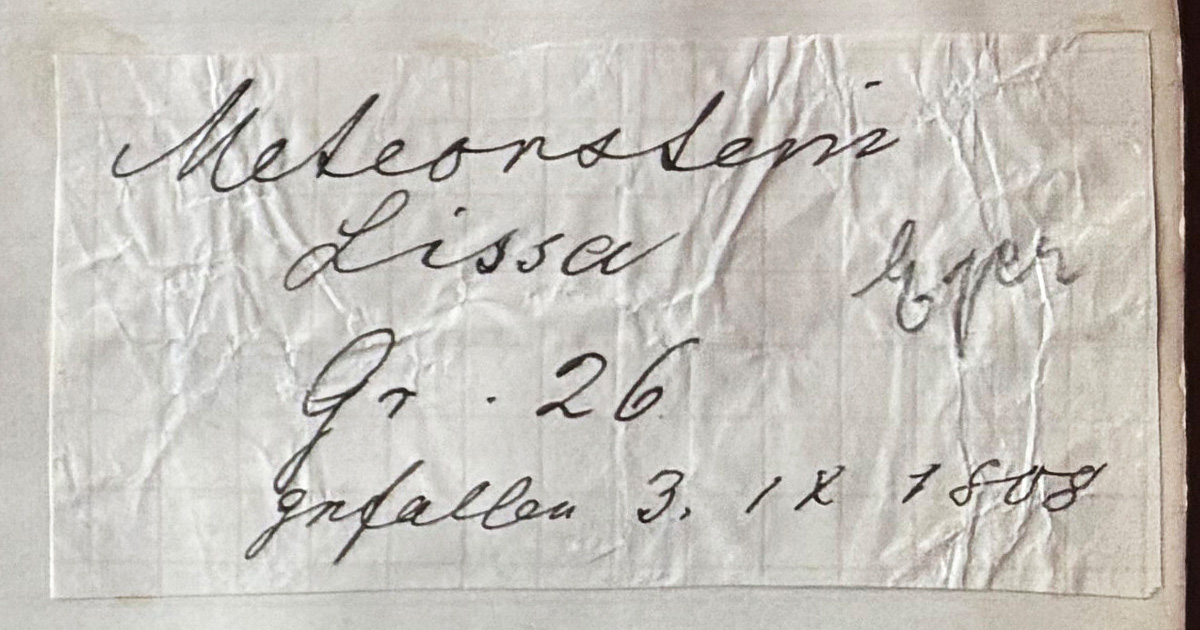 Meteorstein
Lissa
Eger
Gr. 26
gefallen 3. IX 1808